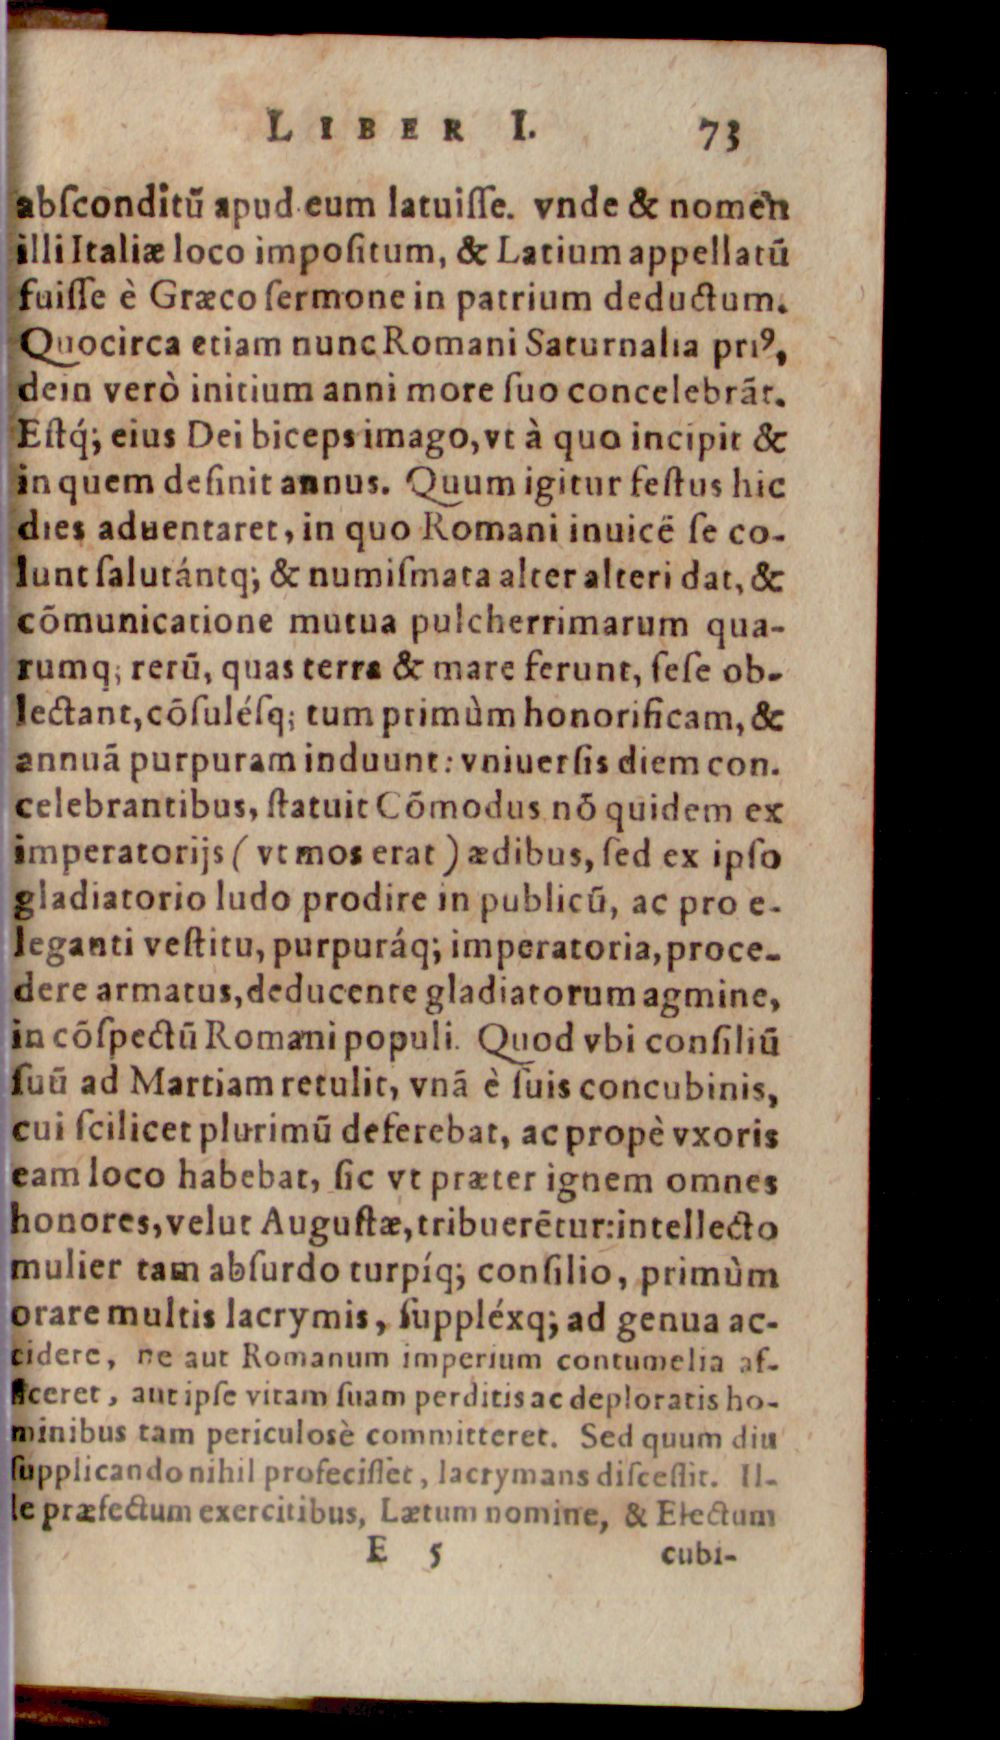 LIBER I. 73
abſconditũ apud eum latuiſſe. vnde & nomen
illi Italiæ loco impoſitum, & Latium appellatũ
fuiſſe è Græco ſermone in patrium deductum.
Quocirca etiam nunc Romani Saturnalia priꝰ,
dein verò initium anni more ſuo concelebrãt.
Eſtq́; eius Dei biceps imago, vt à quo incipit &
in quem deſinit annus. Quum igitur feſtus hic
dies aduentaret, in quo Romani inuicẽ ſe co-
lunt ſalutántq; & numiſmata alter alteri dat, &
cõmunicatione mutua pulcherrimarum qua-
rumq; rerũ, quas terra & mare ferunt, ſeſe ob-
lectant, cõſuléſq; tum primùm honorificam, &
annuã purpuram induunt: vniuerſis diem con.
celebrantibus, ſtatuit Cõmodus nõ quidem ex
imperatorijs ( vt mos erat ) ædibus, ſed ex ipſo
gladiatorio ludo prodire in publicũ, ac pro e-
leganti veſtitu, purpuráq; imperatoria, proce-
dere armatus, deducente gladiatorum agmine,
in cõſpectũ Romani populi. Quod vbi conſiliũ
ſuũ ad Martiam retulit, vnã è ſuis concubinis,
cui ſcilicet plurimũ deferebat, ac propè vxoris
eam loco habebat, ſic vt præter ignem omnes
honores, velut Auguſtæ, tribuerẽtur: intellecto
mulier tam abſurdo turpíq; conſilio, primùm
orare multis lacrymis, ſuppléxq; ad genua ac-
cidere, ne aut Romanum imperium contumelia af-
ficeret, aut ipſe vitam ſuam perditis ac deploratis ho-
minibus tam periculosè committeret. Sed quum diu
ſupplicando nihil profeciſſet, lacrymans diſceſſit. Il-
le præfectum exercitibus, Lætum nomine, & Electum
E 5 cubi-